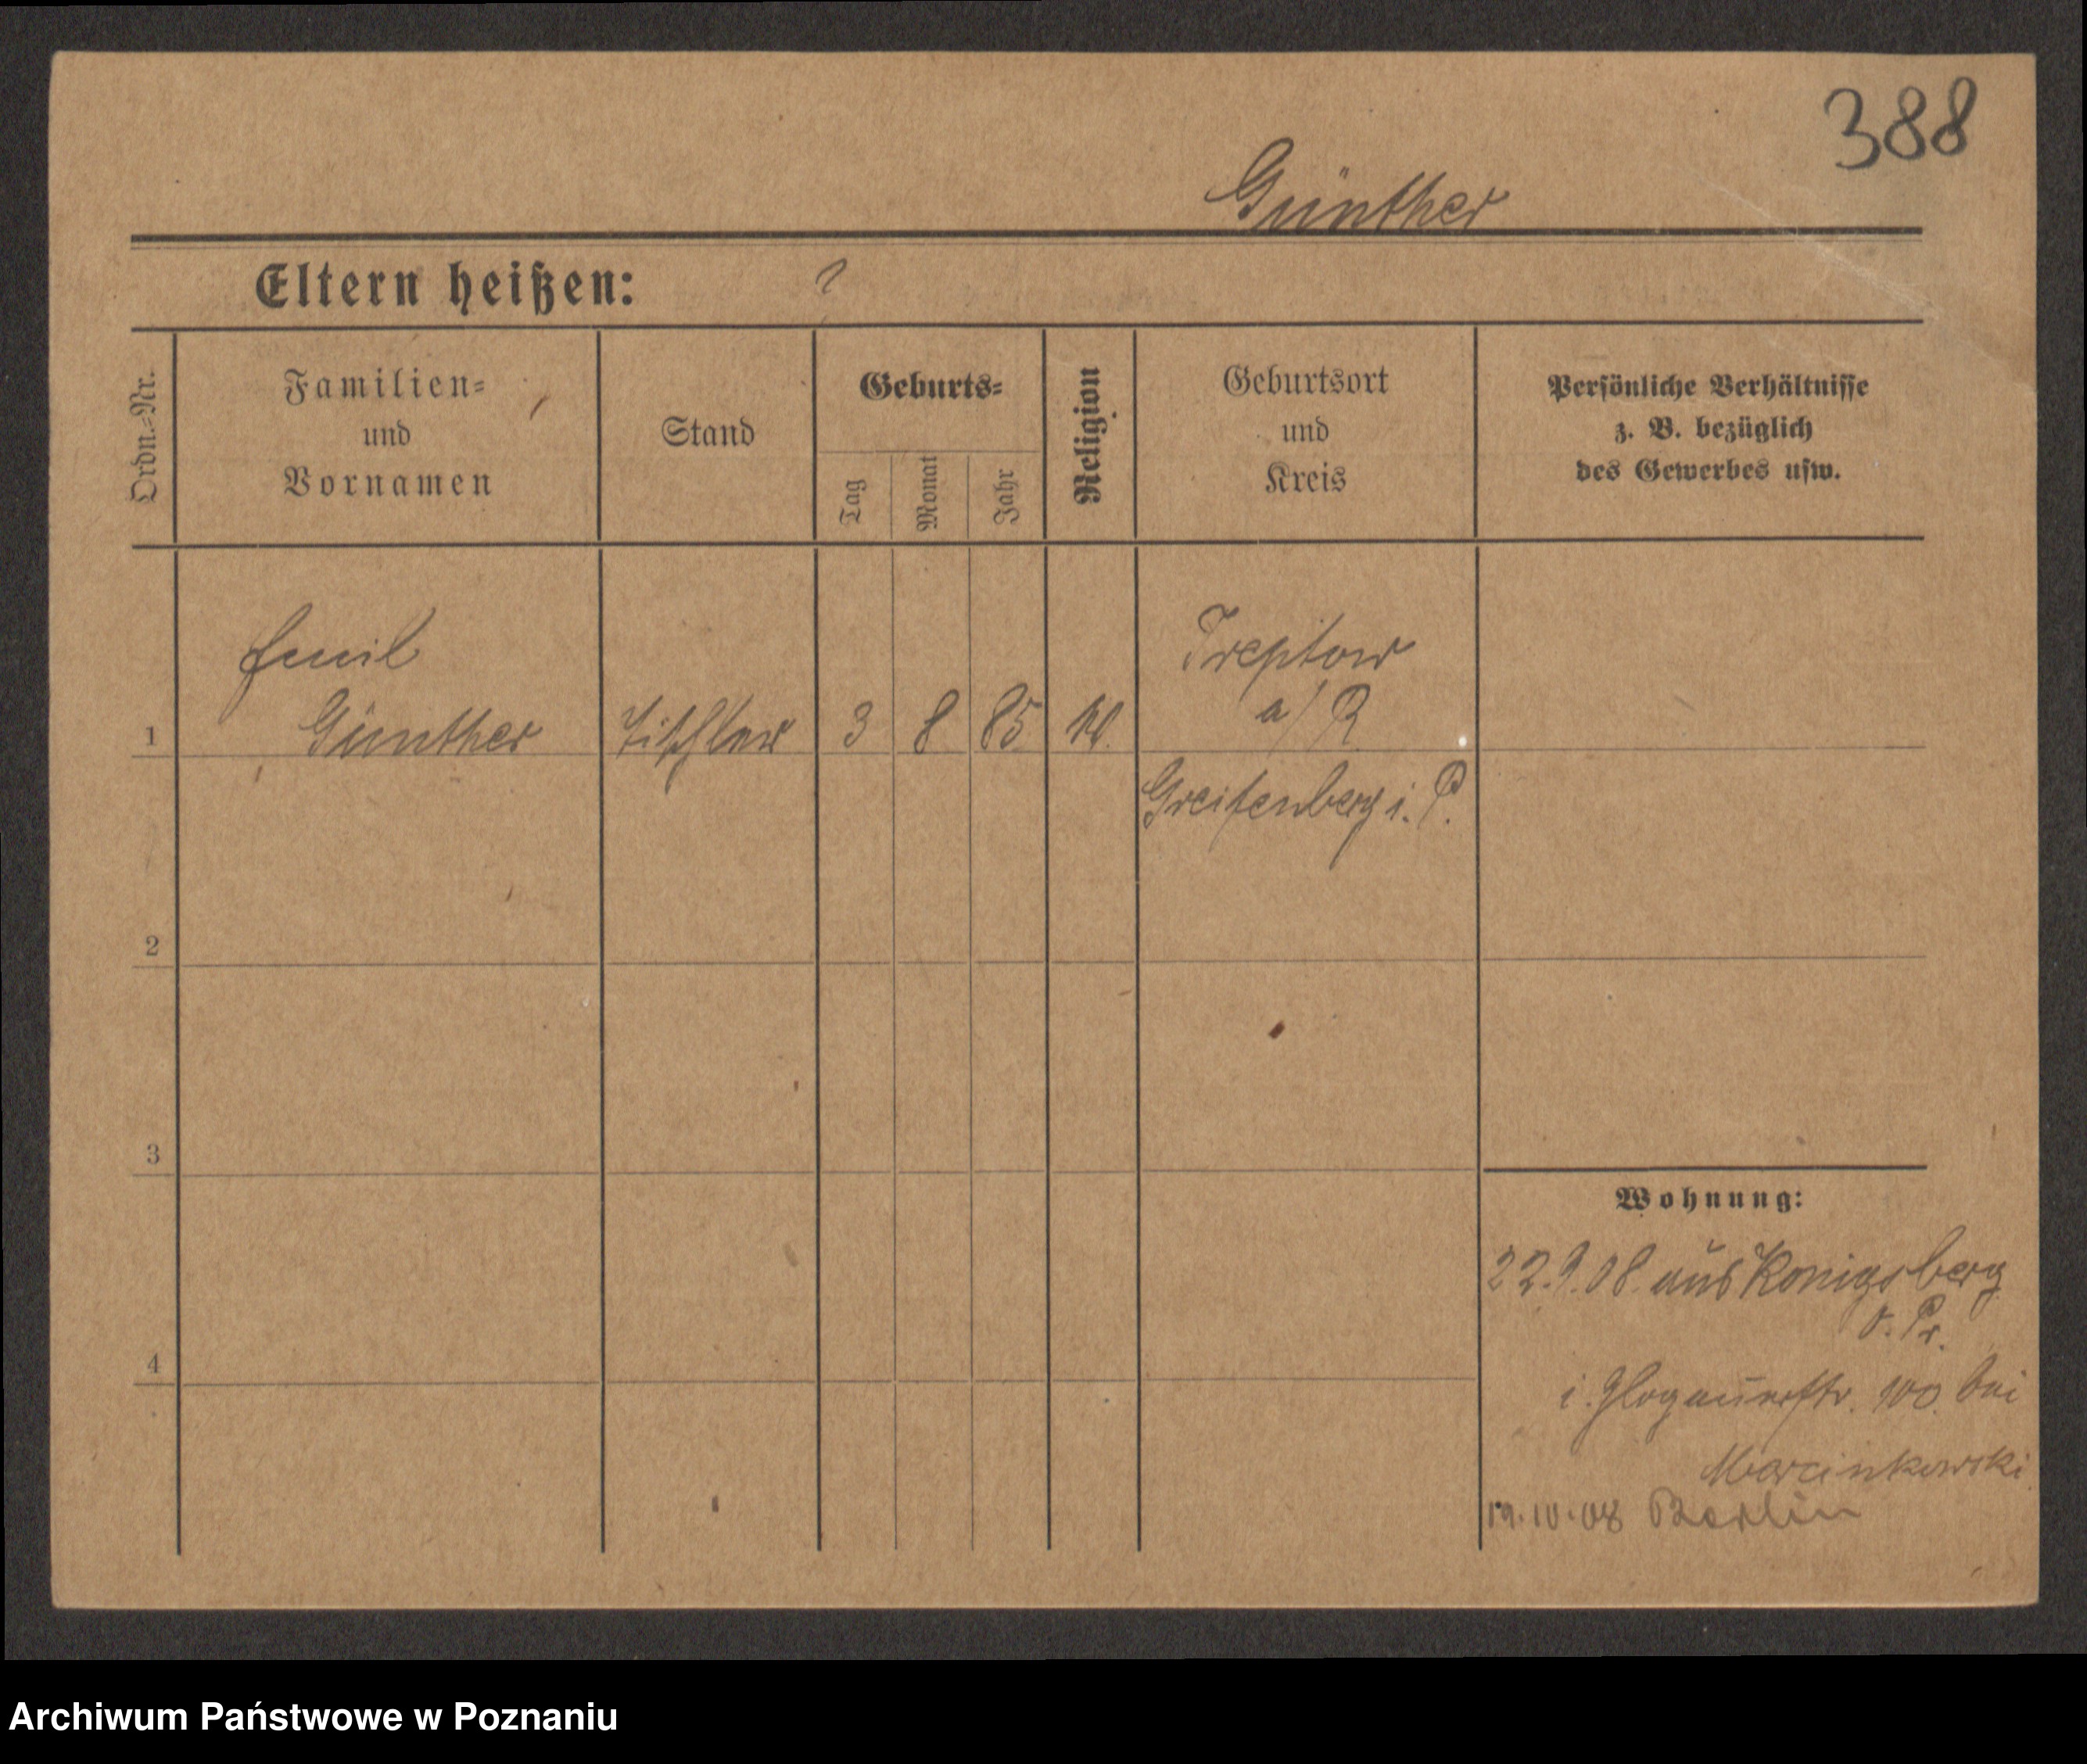 388
Günther
Eltern heißen: ?
Ordn.-Nr.
Familien-
und
Vornamen
Stand
Geburts-
Tag
Monat
Jahr
Religion
Geburtsort
und
Kreis
Persönliche Verhältnisse
z. B. bezüglich
des Gewerbes usw.
Emil
Treptow
a/R
1 Günther Tischler 3 8 85
Greifenberg i. P.
2
3
Wohnung:
22.9.08. aus Königsberg
O. Pr.
4
i. Glogauerstr. 100. bei
Marcinkowski
19.10.08 Berlin
Archiwum Państwowe w Poznaniu